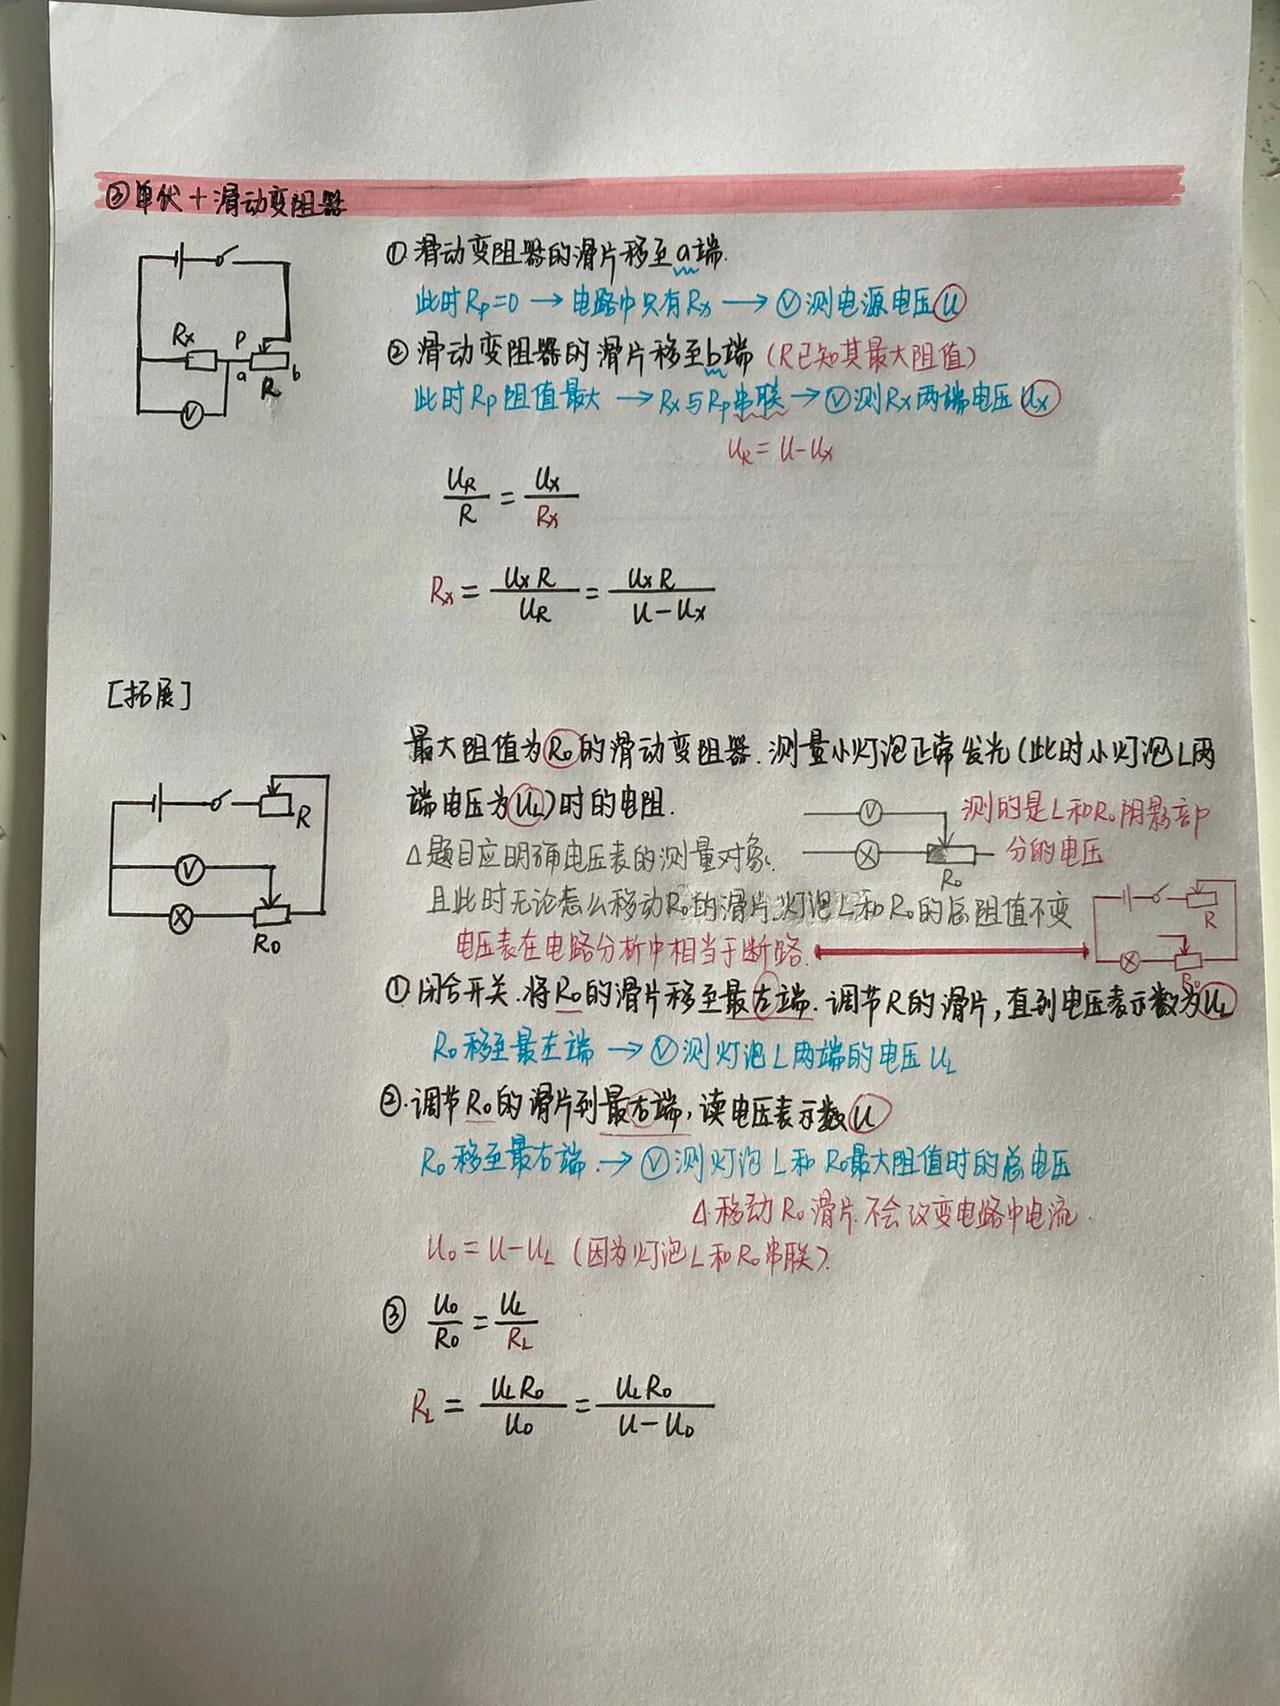 ②单伏+滑动变阻器
①滑动变阻器的滑片移至a端.
此时Rp=0→电路中只有Rx→Ⓥ测电源电压U
②滑动变阻器的滑片移至b端(R已知其最大阻值)
此时Rp阻值最大→Rx与Rp串联→Ⓥ测Rx两端电压Ux
UR=U-Ux
Rx P a R b
V
UR/R=Ux/Rx
Rx=UxR/UR=UxR/U-Ux
[拓展]
最大阻值为R0的滑动变阻器.测量小灯泡正常发光(此时小灯泡L两
端电压为UL)时的电阻.
R
V
R0
V
R0
测的是L和R0阴影部
分的电压
△题目应明确电压表的测量对象.
且此时无论怎么移动R0的滑片.灯泡L和R0的总阻值不变
电压表在电路分析中相当于断路.
R
R0
①闭合开关.将R0的滑片移至最左端.调节R的滑片,直到电压表示数为UL
R0移至最左端→Ⓥ测灯泡L两端的电压UL
②.调节R0的滑片到最右端,读电压表示数U
R0移至最右端.→Ⓥ测灯泡L和R0最大阻值时的总电压
△.移动R0滑片.不会改变电路中电流.
U0=U-UL(因为灯泡L和R0串联).
③ U0/R0=UL/RL
RL=ULR0/U0=ULR0/U-U0